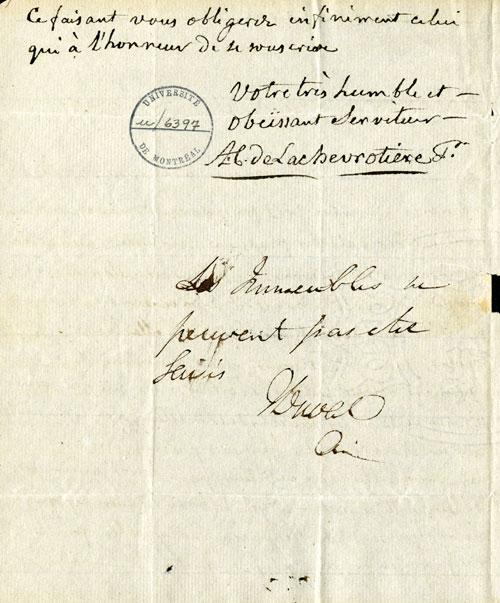 Ce faisant vous obligerez infiniment celui
qui à l'honneur de se souscrire
Votre très humble et —
obéissant Serviteur —
A.C. de Lachevrotière
UNIVERSITÉ
u/6397
DE MONTRÉAL
Les Immeubles ne
peuvent pas etre
Saisis